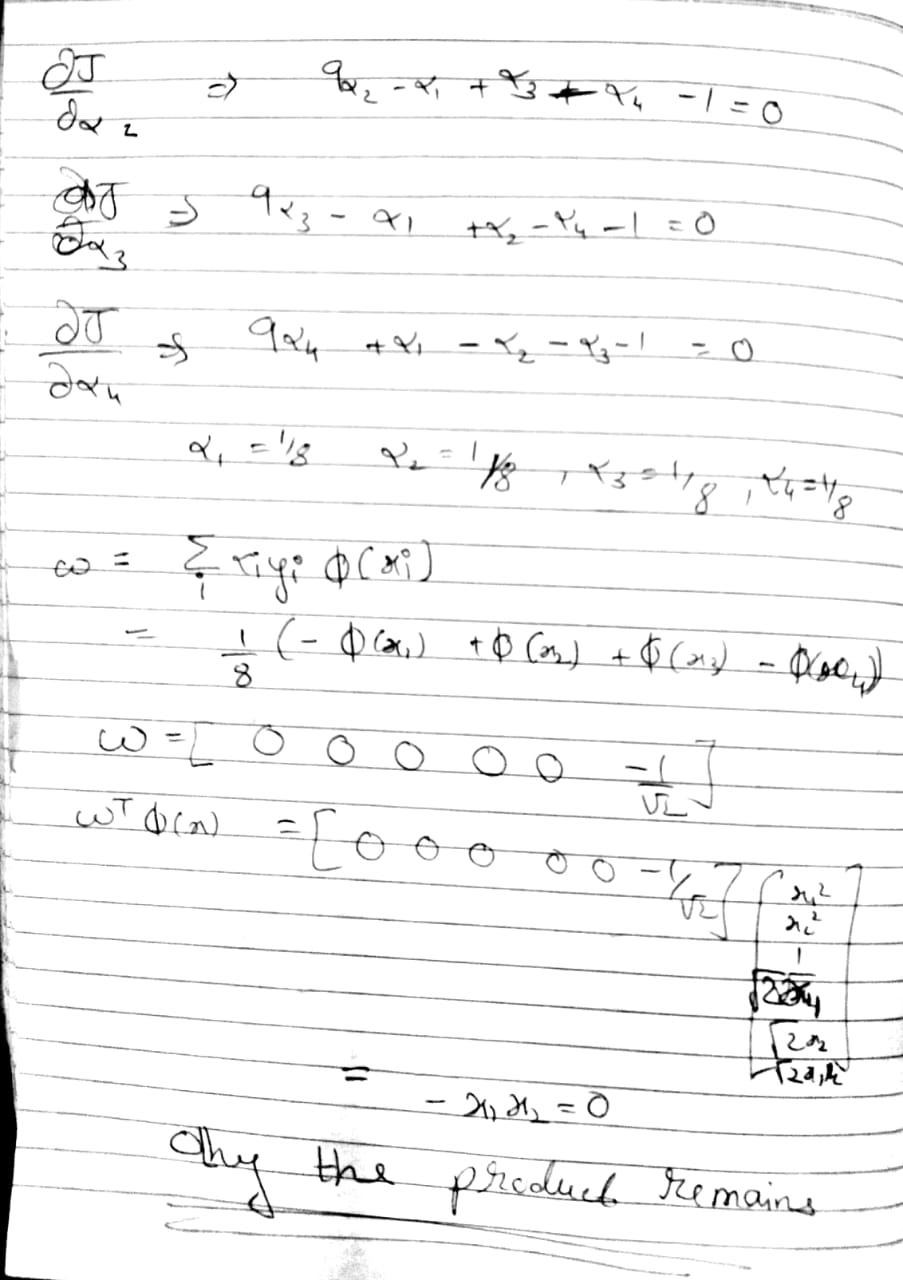 ∂J/∂α₂ ⇒ 9α₂ - α₁ + α₃ + α₄ - 1 = 0
∂J/∂α₃ ⇒ 9α₃ - α₁ + α₂ - α₄ - 1 = 0
∂J/∂α₄ ⇒ 9α₄ + α₁ - α₂ - α₃ - 1 = 0
α₁ = 1/8 α₂ = 1/8 , α₃ = 1/8 , α₄ = 1/8
ω = Σᵢ αᵢyᵢ ϕ(xᵢ)
= 1/8 (- ϕ(x₁) + ϕ(x₂) + ϕ(x₃) - ϕ(x₄))
ω = [ 0 0 0 0 0 -1/√2 ]
ωᵀ ϕ(x) = [ 0 0 0 0 0 -1/√2 ] [ x₁²
x₂²
1
√2x₁
√2x₂
√2x₁x₂ ]
= - x₁x₂ = 0
Ohy the product remains